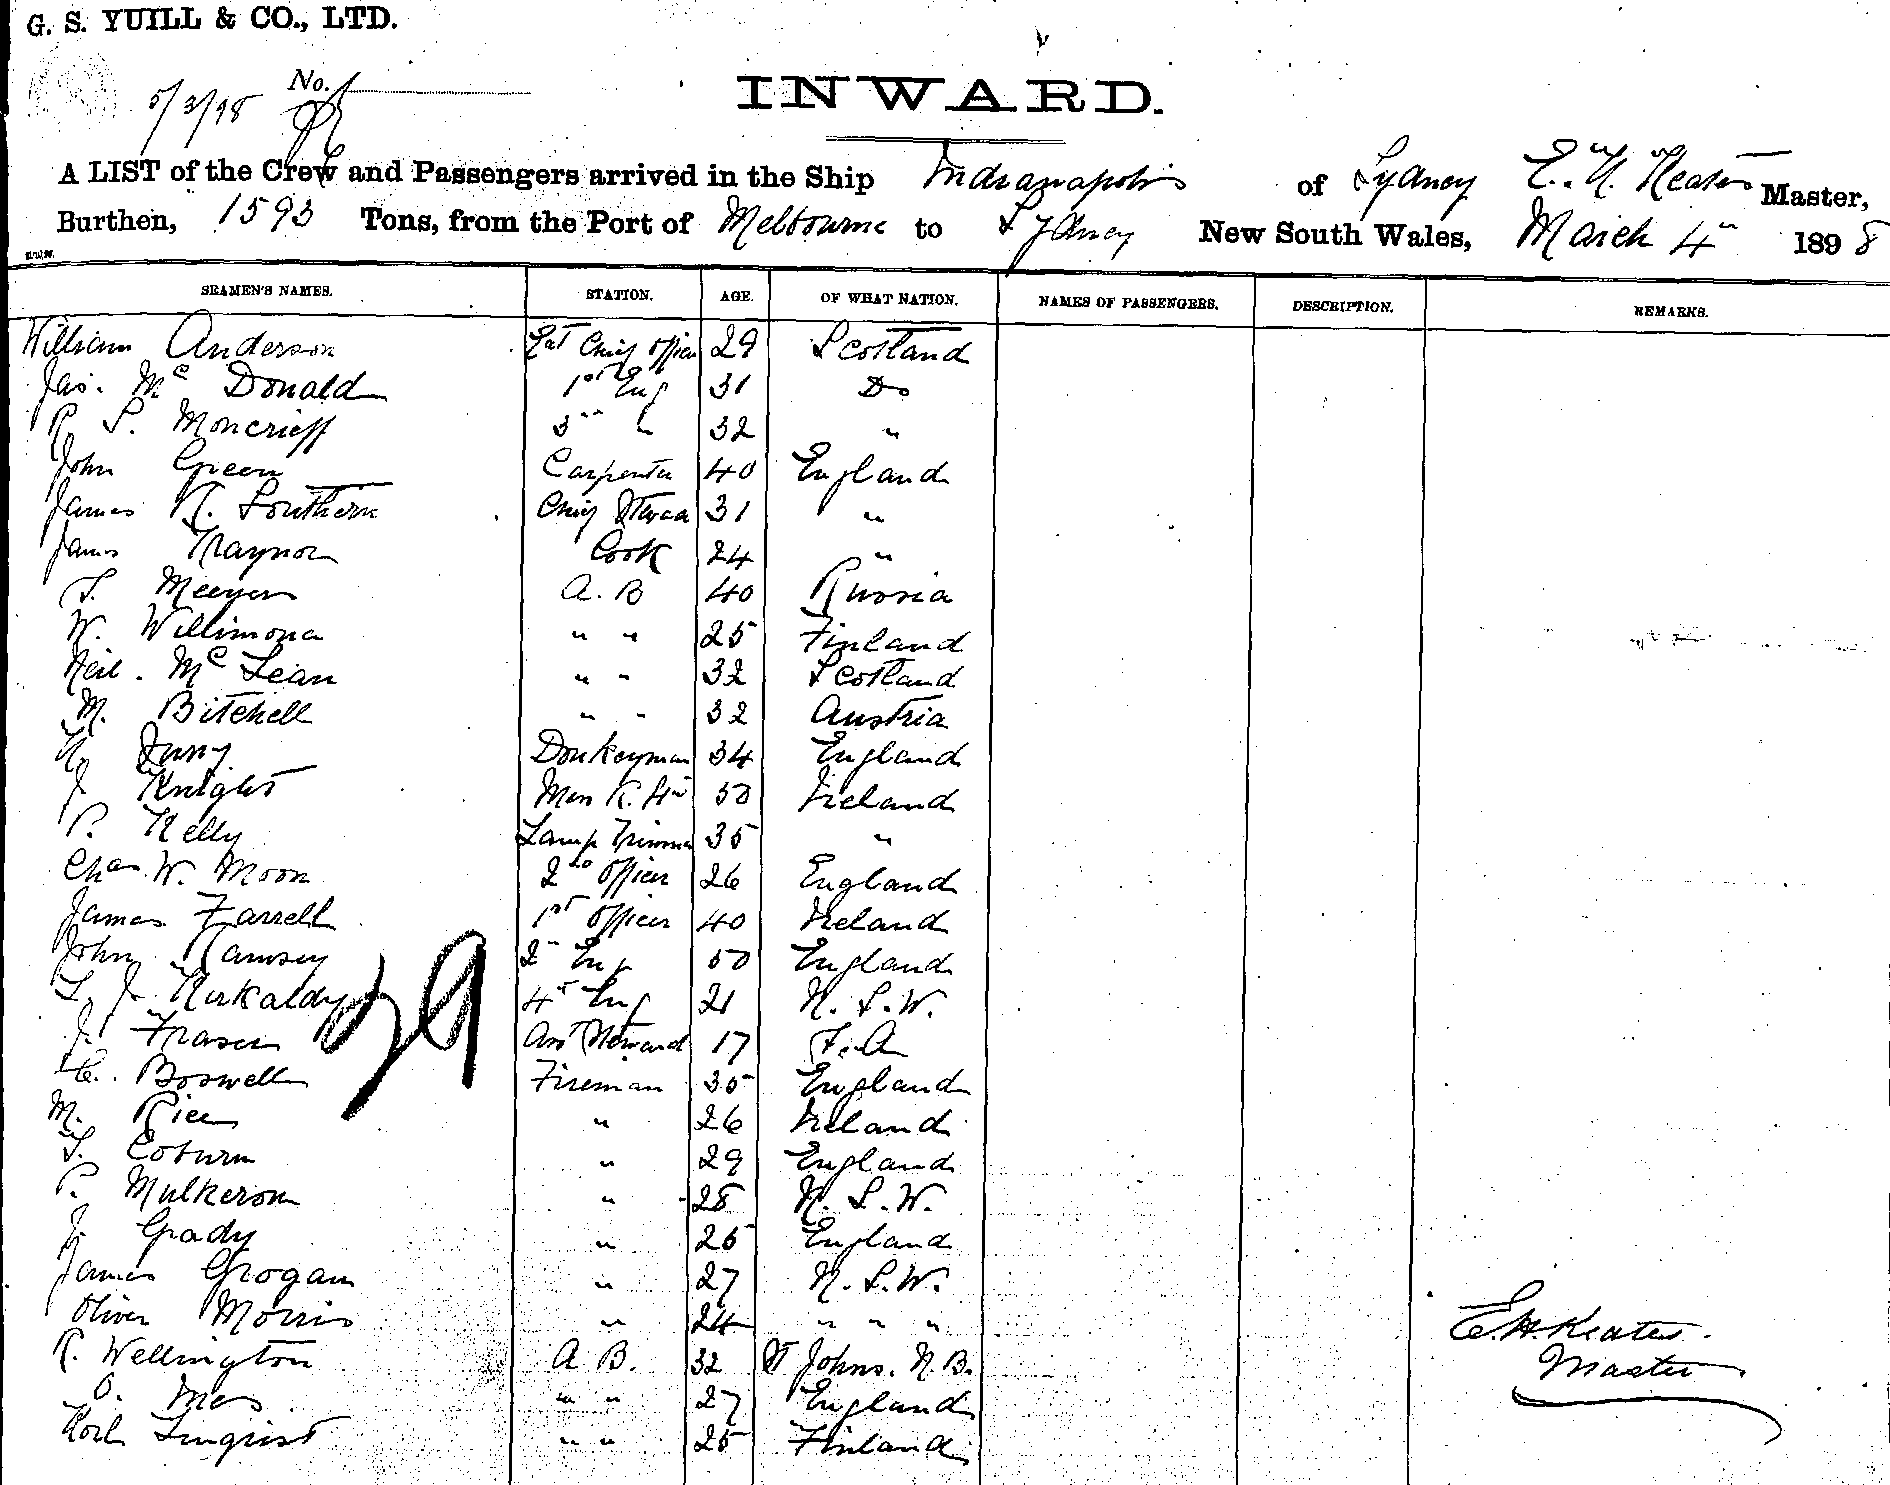 G. S. YUILL & CO., LTD.
5/3/98 No.
INWARD.
A LIST of the Crew and Passengers arrived in the Ship Indianapolis of Sydney E. H. Keates Master,
Burthen, 1593 Tons, from the Port of Melbourne to Sydney New South Wales, March 4th 1898
SEAMEN'S NAMES. STATION. AGE. OF WHAT NATION. NAMES OF PASSENGERS. DESCRIPTION. REMARKS.
William Anderson Chief Officer 29 Scotland
Jas. Mc Donald 1st Eng 31 Do
R. S. Moncrieff 3rd " 32 "
John Green Carpenter 40 England
James R. Southern Chief Stwad 31 "
James Traynor Cook 24 "
Meeyers A. B 40 Russia
W. Willimona " " 25 Finland
Neil. Mc Lean " " 32 Scotland
M. Bitchell " " 32 Austria
Donkeyman 34 England
J. Knight Mess R. Stwd 50 Ireland
P. Kelly Lamp Trimmer 35 "
Chas. W. Moon 2nd Officer 26 England
James Farrell 1st Officer 40 Ireland
John Ramsey 2nd Eng 50 England
L. J. Kirkaldy 4th Eng 21 N. S. W.
J. Fraser Asst Steward 17 S. A
C. Boswell Fireman 35 England
M. Rice " 26 Ireland
T. Coburn " 29 England
P. Mulkerson " 28 N. S. W.
J. Grady " 25 England
James Grogan " 27 N. S. W.
Oliver Morris " 24 " " "
R. Wellington A B. 32 St Johns. N. B.
O. " " 27 England
Karl Linqvist " " 25 Finland
29
E. H. Keates.
Master